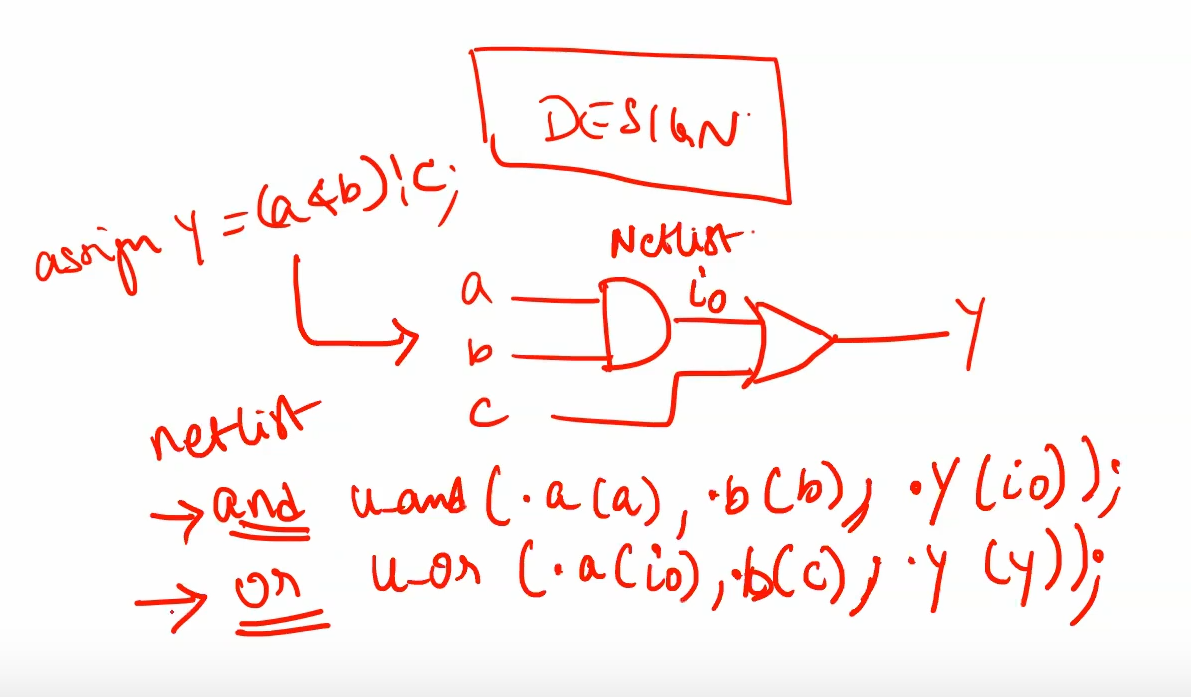 DESIGN
assign y = (a&b)|c;
Netlist
a
i0
b
y
c
netlist
→ and u_and (.a(a), .b(b), .y(i0));
→ or u_or (.a(i0), .b(c), .y(y));